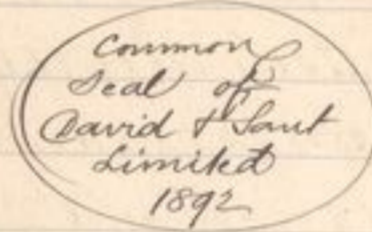 Common
Seal of
David & Saut
Limited
1892